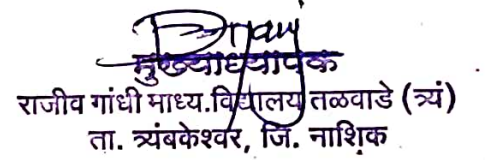 मुख्याध्यापक
राजीव गांधी माध्य.विद्यालय तळवाडे (त्र्यं)
ता. त्र्यंबकेश्वर, जि. नाशिक